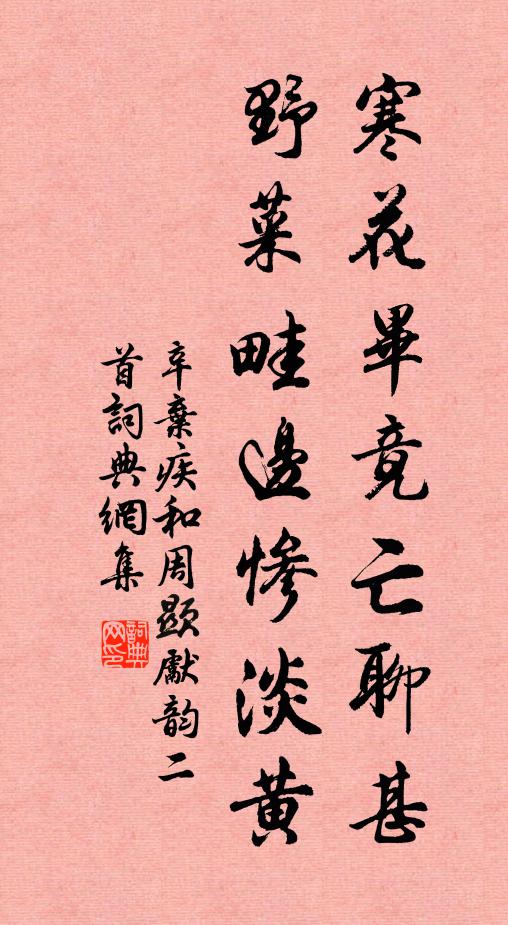 寒花畢竟亡聊甚
野菜畦邊慘淡黄
辛棄疾和周顯獻韵二
首詞典網集
詞典
网印